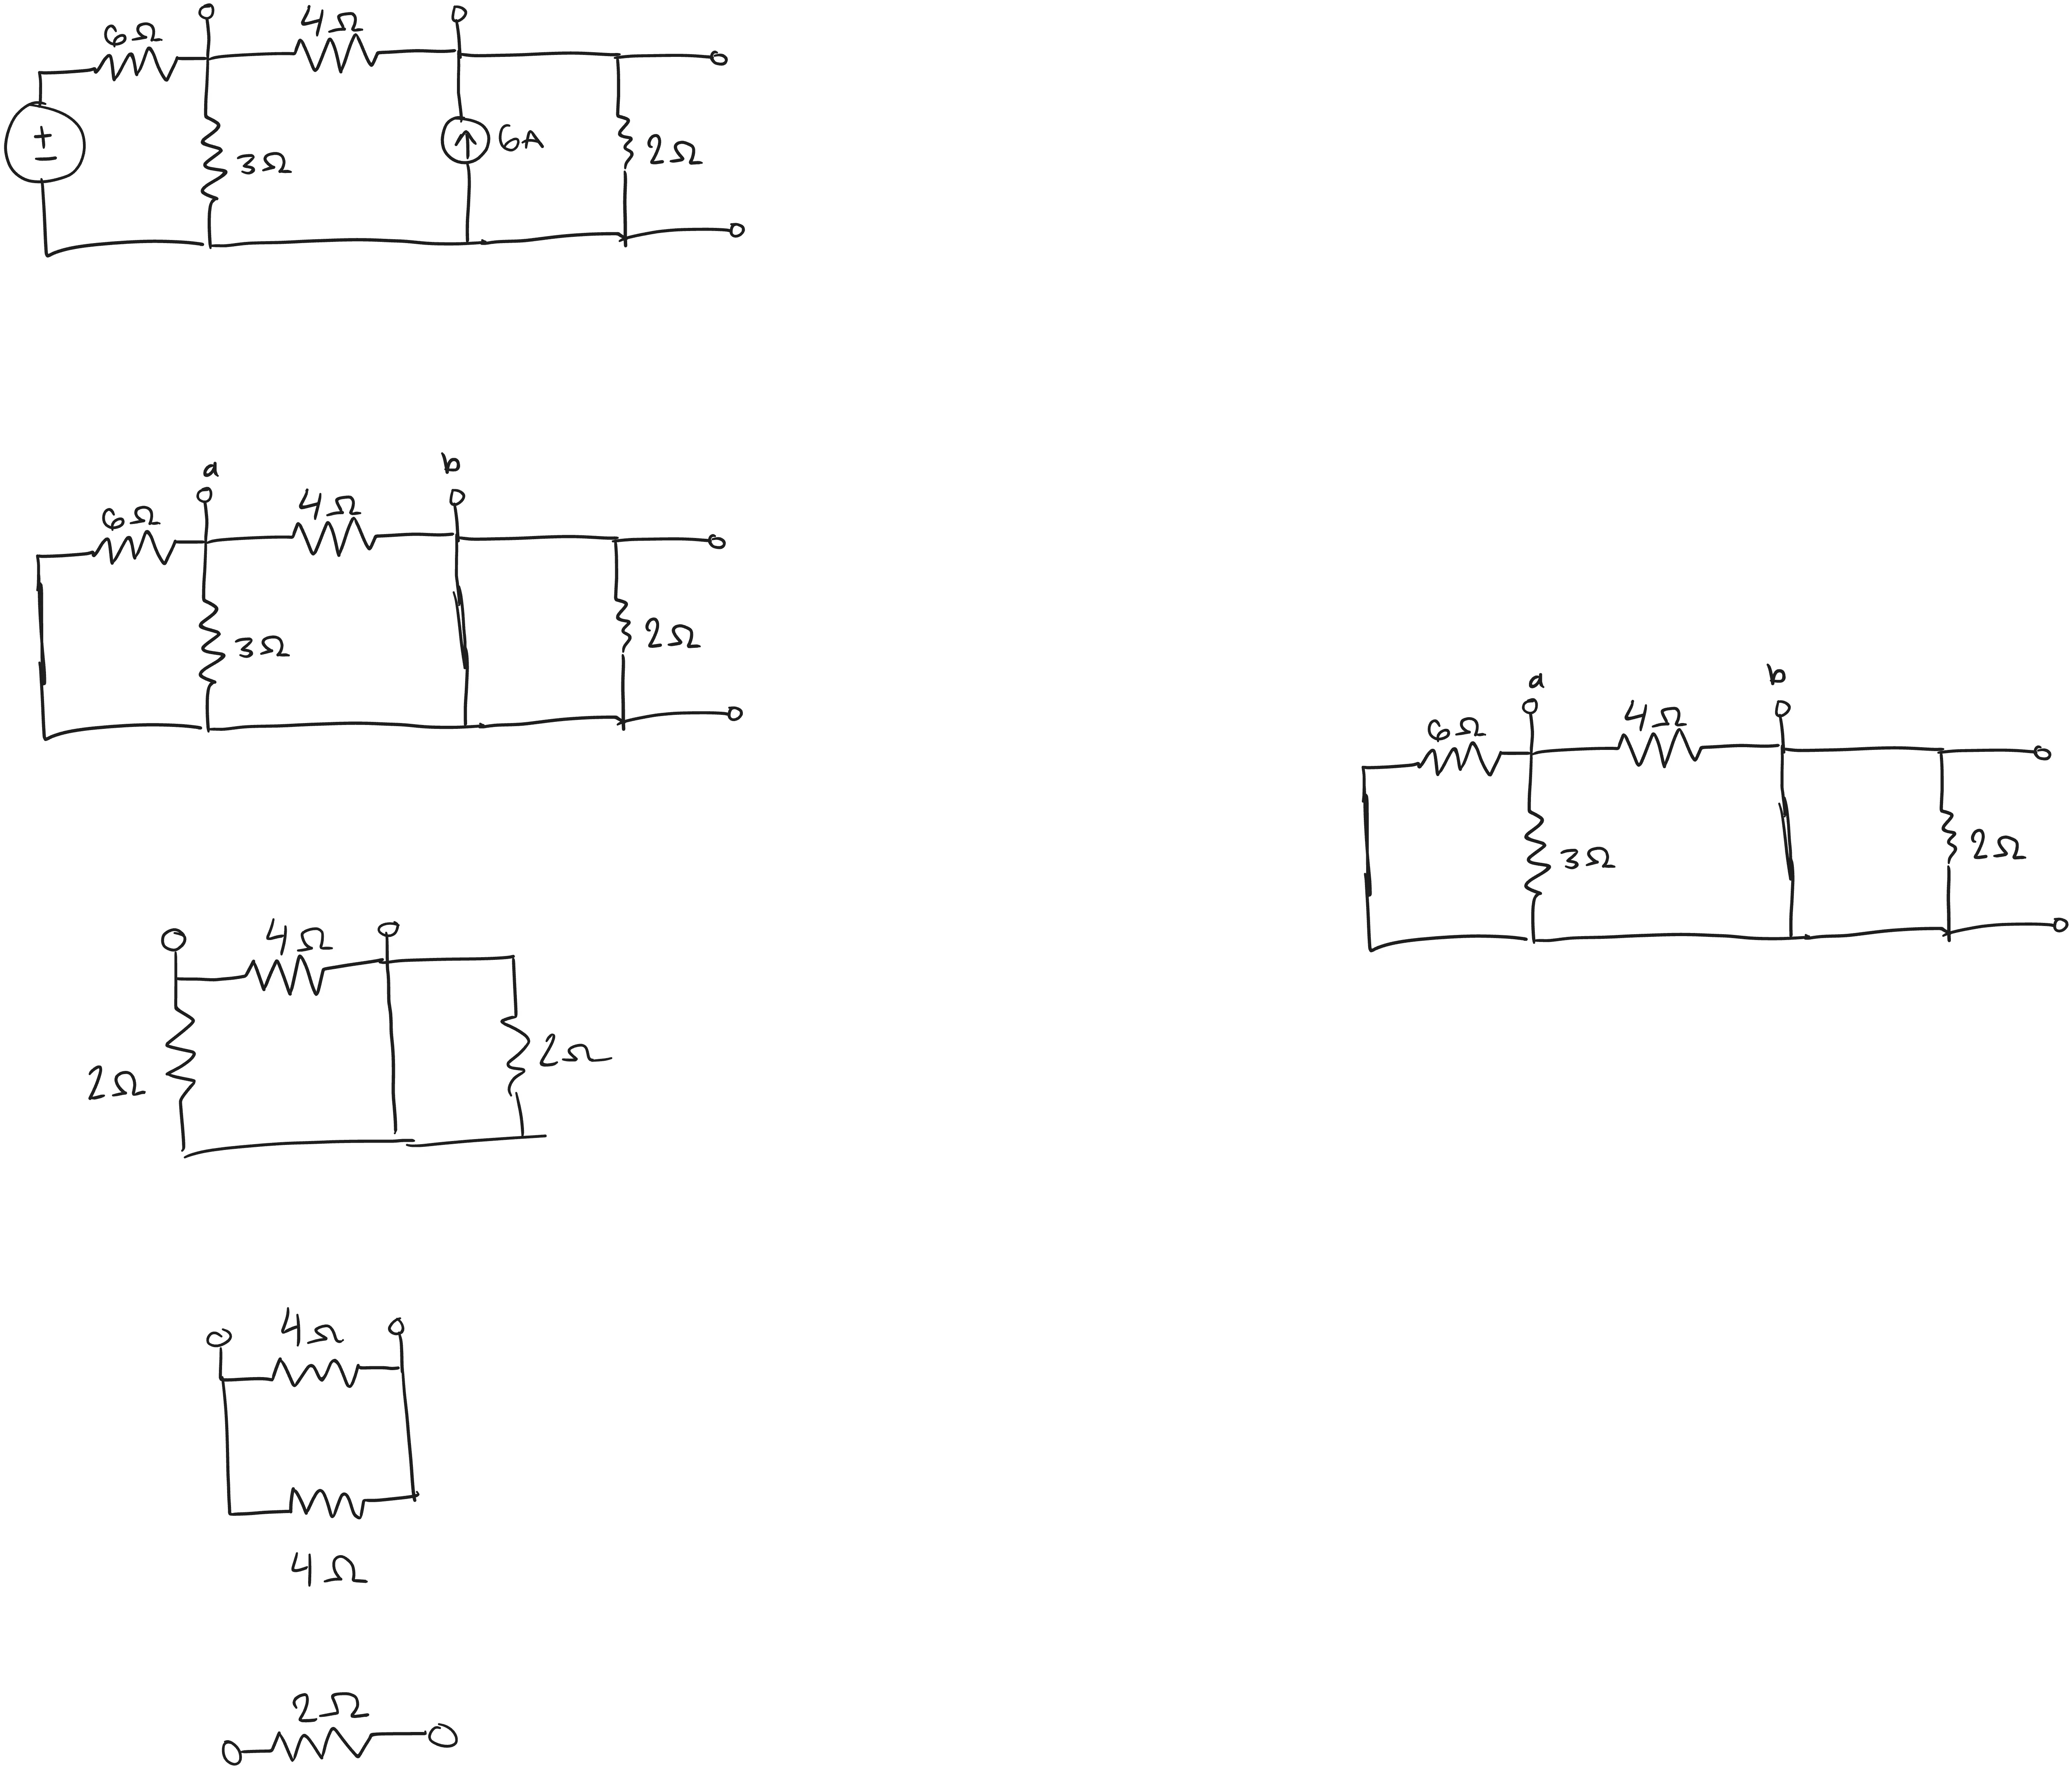 6Ω 4Ω
+
−
3Ω
6A
2Ω
a b
6Ω 4Ω
3Ω
2Ω
a b
6Ω 4Ω
3Ω
2Ω
4Ω
2Ω
2Ω
4Ω
4Ω
2Ω